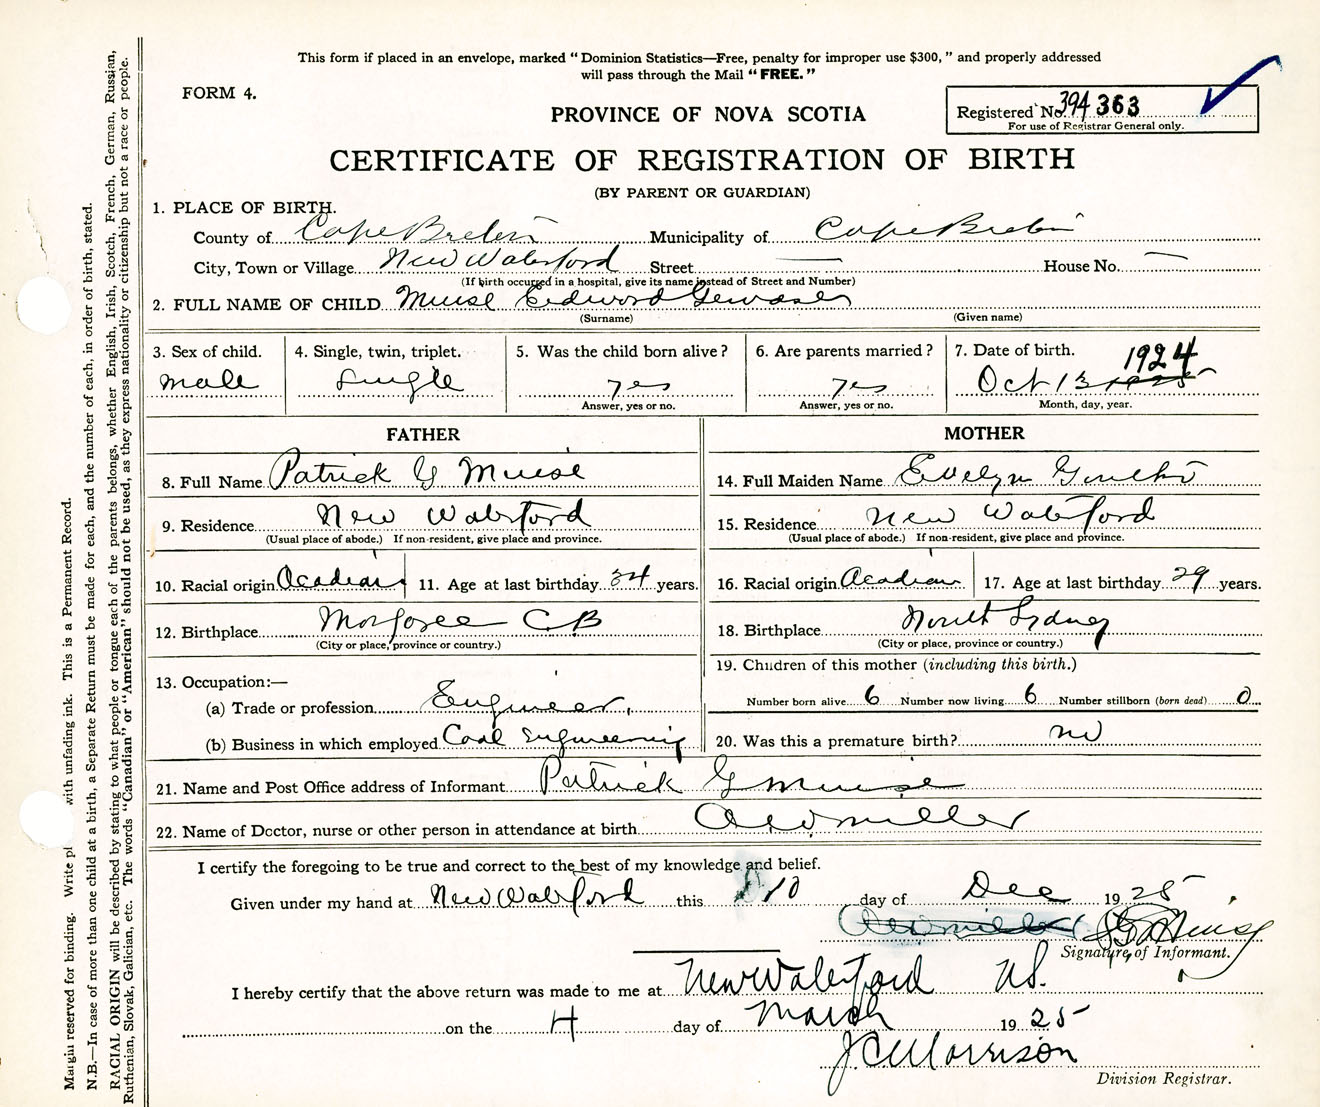 This form if placed in an envelope, marked "Dominion Statistics—Free, penalty for improper use $300," and properly addressed
will pass through the Mail "FREE."
FORM 4.
PROVINCE OF NOVA SCOTIA
Registered No. 394363
For use of Registrar General only.
CERTIFICATE OF REGISTRATION OF BIRTH
(BY PARENT OR GUARDIAN)
1. PLACE OF BIRTH.
County of Cape Breton Municipality of Cape Breton
City, Town or Village New Waterford Street — House No. —
(If birth occurred in a hospital, give its name instead of Street and Number)
2. FULL NAME OF CHILD Muise Edword
(Surname) (Given name)
3. Sex of child. 4. Single, twin, triplet. 5. Was the child born alive? 6. Are parents married? 7. Date of birth. 1924
male Single yes yes Oct 13 1925
Answer, yes or no. Answer, yes or no. Month, day, year.
FATHER MOTHER
8. Full Name Patrick G Muise 14. Full Maiden Name Evelyn
9. Residence New Waterford 15. Residence New Waterford
(Usual place of abode.) If non-resident, give place and province. (Usual place of abode.) If non-resident, give place and province.
10. Racial origin Acadian 11. Age at last birthday 34 years. 16. Racial origin Acadian 17. Age at last birthday 29 years.
12. Birthplace Margaree CB 18. Birthplace North Sydney
(City or place, province or country.) (City or place, province or country.)
13. Occupation:— 19. Children of this mother (including this birth.)
(a) Trade or profession Engineer. Number born alive 6 Number now living 6 Number stillborn (born dead) 0
(b) Business in which employed Coal Engineering 20. Was this a premature birth? no
21. Name and Post Office address of Informant Patrick G Muise
22. Name of Doctor, nurse or other person in attendance at birth miller
I certify the foregoing to be true and correct to the best of my knowledge and belief.
Given under my hand at New Waterford this 10 day of Dec 1925
Muise
Signature of Informant.
I hereby certify that the above return was made to me at New Waterford NS.
on the 4 day of March 1925
J C Morrison
Division Registrar.
Margin reserved for binding. Write pl with unfading ink. This is a Permanent Record.
N.B.—In case of more than one child at a birth, a Separate Return must be made for each, and the number of each, in order of birth, stated.
RACIAL ORIGIN will be described by stating to what people or tongue each of the parents belongs, whether English, Irish, Scotch, French, German, Russian,
Ruthenian, Slovak, Galician, etc. The words "Canadian" or "American" should not be used, as they express nationality or citizenship but not a race or people.